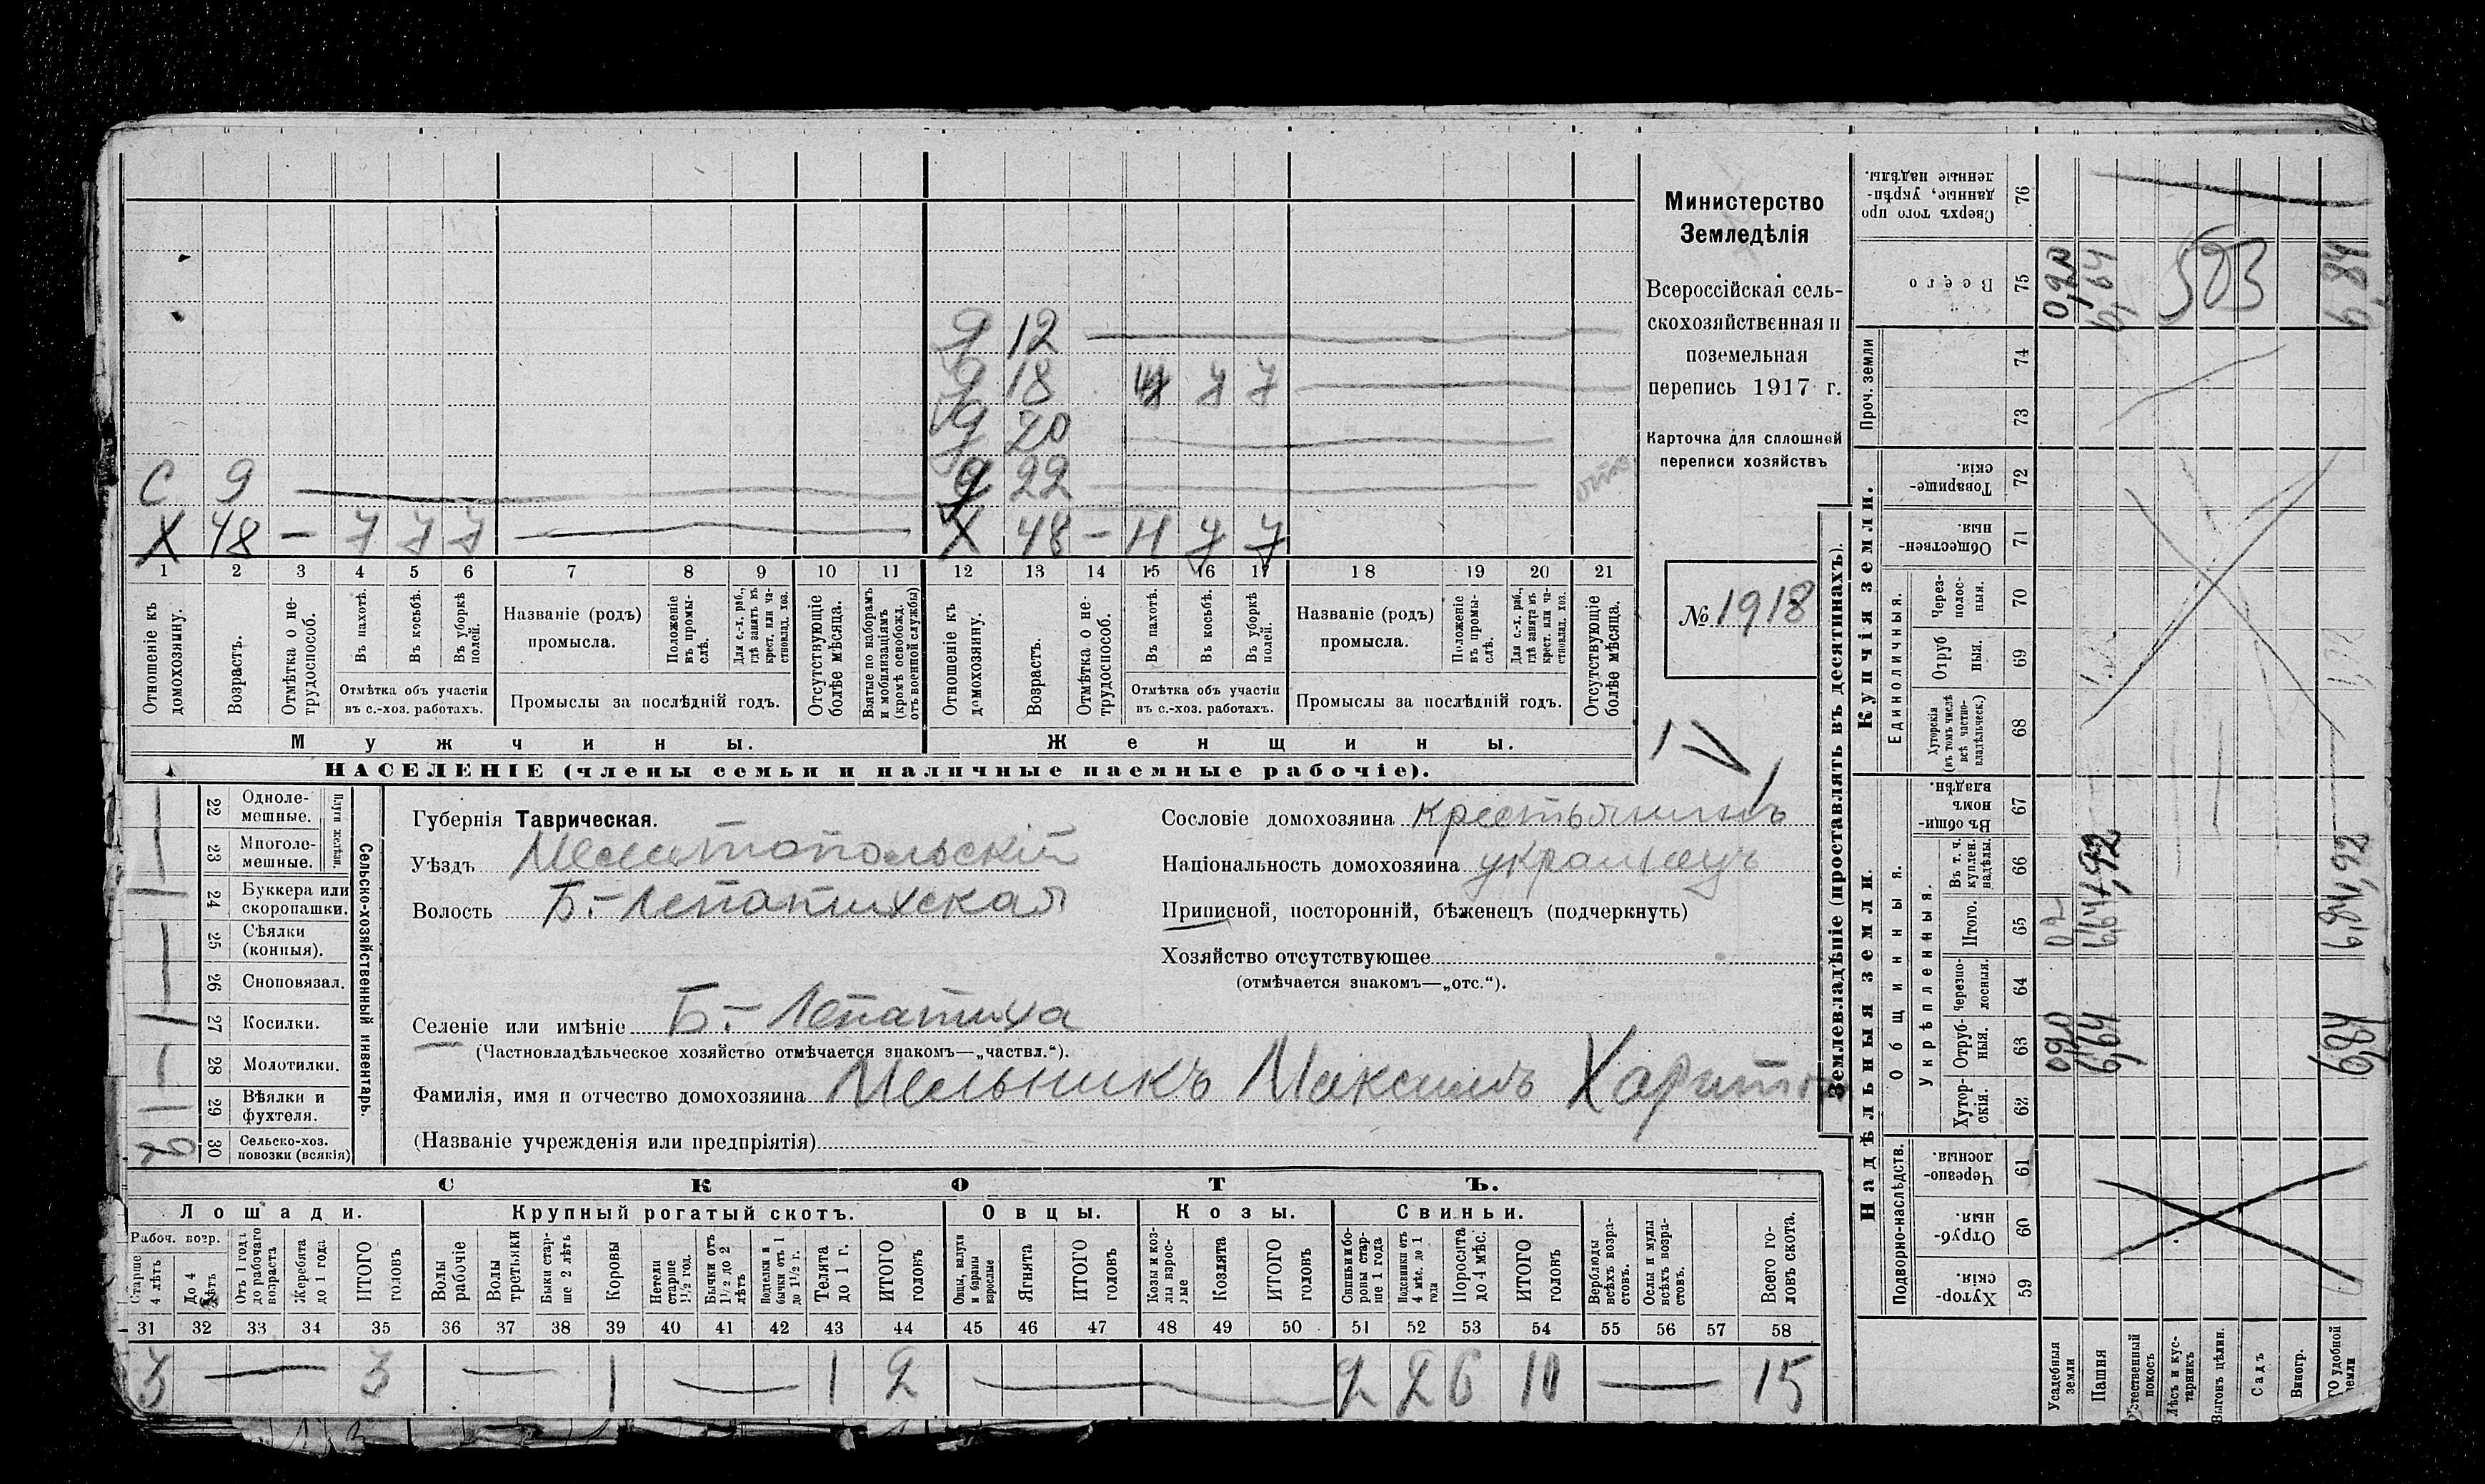 Министерство
Земледѣлія
Всероссійская сель-
скохозяйственная и
поземельная
перепись 1917 г.
Карточка для сплошной
переписи хозяйствъ
№ 1918
д 12
д 18 Н 7 7
д 20
С 9 д 22
Х 48 — 7 7 7 Х 48 — Н 7 7
1 2 3 4 5 6 7 8 9 10 11 12 13 14 15 16 17 18 19 20 21
Отношеніе къ домохозяину.
Возрастъ.
Отмѣтка о не-трудоспособ.
Въ пахотѣ.
Въ косьбѣ.
Въ уборкѣ полей.
Отмѣтка объ участіи
въ с.-хоз. работахъ.
Названіе (родъ)
промысла.
Положеніе въ промы-слѣ.
Для с.-х. раб., гдѣ занятъ въ крест. или ча-стновлад. хоз.
Промыслы за послѣдній годъ.
Отсутствующіе болѣе мѣсяца.
Взятые по наборамъ и мобилизаціямъ (кромѣ освобожд. отъ военной службы)
Отношеніе къ домохозяину.
Возрастъ.
Отмѣтка о не-трудоспособ.
Въ пахотѣ.
Въ косьбѣ.
Въ уборкѣ полей.
Отмѣтка объ участіи
въ с.-хоз. работахъ.
Названіе (родъ)
промысла.
Положеніе въ промы-слѣ.
Для с.-х. раб., гдѣ занята въ крест. или ча-стновлад. хоз.
Промыслы за послѣдній годъ.
Отсутствующіе болѣе мѣсяца.
Мужчины.
Женщины.
НАСЕЛЕНІЕ (члены семьи и наличные наемные рабочіе).
Сельско-хозяйственный инвентарь.
22 Одноле-мешные.
23 Многоле-мешные.
24 Буккера или скоропашки.
25 Сѣялки (конныя).
26 Сноповязал.
27 Косилки.
28 Молотилки.
29 Вѣялки и фухтеля.
30 Сельско-хоз. повозки (всякія)
Губернія Таврическая.
Уѣздъ Мелитопольскій
Волость Б.-Лепатихская
Селеніе или имѣніе Б.- Лепатиха
(Частновладѣльческое хозяйство отмѣчается знакомъ—„частвл.“).
Фамилія, имя и отчество домохозяина Мельникъ Максимъ Харито
(Названіе учрежденія или предпріятія)
Сословіе домохозяина крестьянинъ
Національность домохозяина украинецъ
Приписной, посторонній, бѣженецъ (подчеркнуть)
Хозяйство отсутствующее
(отмѣчается знакомъ—„отс.“).
СКОТЪ.
Лошади.
Крупный рогатый скотъ.
Овцы.
Козы.
Свиньи.
Рабоч. возр.
Старше 4 лѣтъ
До 4 лѣтъ
Отъ 1 года до рабочаго возраста
Жеребята до 1 года
ИТОГО головъ
Волы рабочіе
Волы третьяки
Быки стар-ше 2 лѣтъ
Коровы
Нетели старше 1½ год.
Бычки отъ 1½ до 2 лѣтъ
Подтелки и бычки отъ 1 до 1½ г.
Телята до 1 г.
ИТОГО головъ
Овцы, валухи и бараны взрослые
Ягнята
ИТОГО головъ
Козы и коз-лы взрос-лые
Козлята
ИТОГО головъ
Свиньи и бо-ровы стар-ше 1 года
Подсвинки отъ 4 мѣс. до 1 года
Поросята до 4 мѣс.
ИТОГО головъ
Верблюды всѣхъ возра-стовъ.
Ослы и мулы всѣхъ возра-стовъ.
Всего го-ловъ скота.
31 32 33 34 35 36 37 38 39 40 41 42 43 44 45 46 47 48 49 50 51 52 53 54 55 56 57 58
3 — 3 — 1 — 1 2 — 2 2 6 10 — 15
Землевладѣніе (проставлять въ десятинахъ).
Надѣльныя земли.
Купчія земли.
Проч. земли
Подворно-наслѣдств.
Общинныя.
Укрѣпленныя.
Единоличныя.
Хутор-скія. 59
Отруб-ныя. 60
Черезпо-лосныя. 61
Хутор-скія. 62
Отруб-ныя. 63
Черезпо-лосныя. 64
Итого. 65
Въ т. ч. куплен. надѣлы. 66
Въ общи-номъ владѣн. 67
Хуторскія (въ томъ числѣ всѣ частно-владѣльческ.) 68
Отруб ныя. 69
Через-полос-ныя. 70
Обществен-ныя 71
Товарище-скія. 72
73
74
Всего 75
Сверхъ того про данные, укрѣп-ленные надѣлы. 76
Усадебныя земли
Пашня
Лѣсъ и кус-тарникъ
Выгонъ цѣлин.
Садъ
Виногр.
6,64
6,84
6,84
503
6,64
6,84